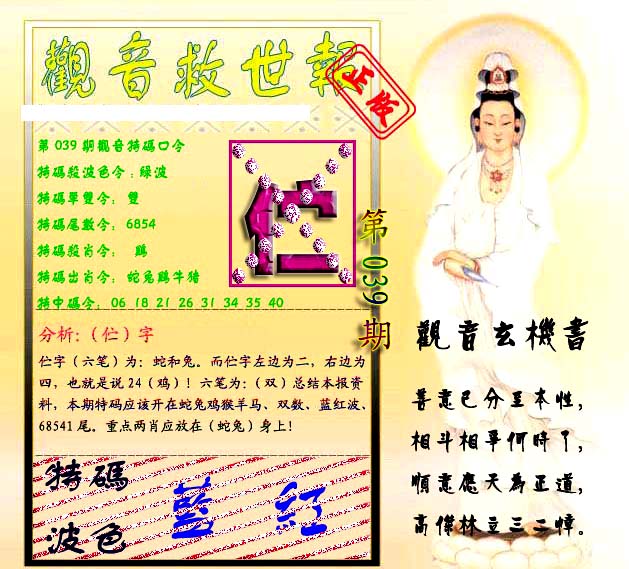 觀音救世報
正版
第039期觀音特碼口令
特碼殺波色令：綠波
特碼單雙令： 雙
特碼尾數令： 6854
特碼殺肖令： 鷄
特碼出肖令： 蛇兔鷄牛猪
特中碼令： 06 18 21 26 31 34 35 40
伫
第039期
分析:（伫）字
伫字（六笔）为：蛇和兔。而伫字左边为二，右边为
四，也就是说 24（鸡）！六笔为：（双）总结本报资
料，本期特码应该开在蛇兔鸡猴羊马、双数、蓝红波、
68541 尾。重点两肖应放在（蛇兔）身上！
特碼
波色
藍 红
觀音玄機書
善意已分至本性，
相斗相爭何時了，
順意應天為正道，
高傑林立三二幢。